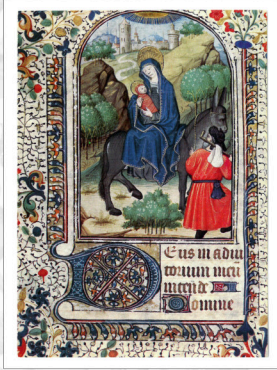 DEus in adiu
torium meu
intende
Domine